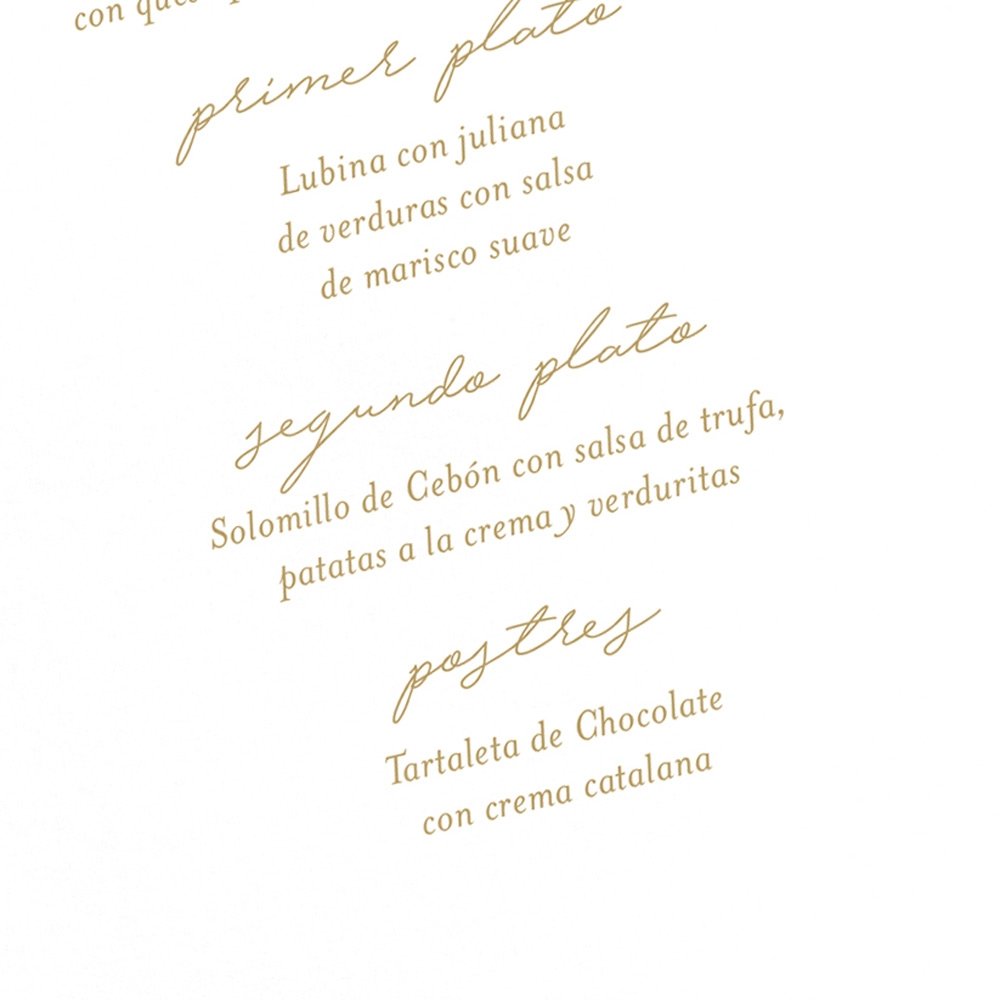 con
primer plato
Lubina con juliana
de verduras con salsa
de marisco suave
segundo plato
Solomillo de Cebón con salsa de trufa,
patatas a la crema y verduritas
postres
Tartaleta de Chocolate
con crema catalana